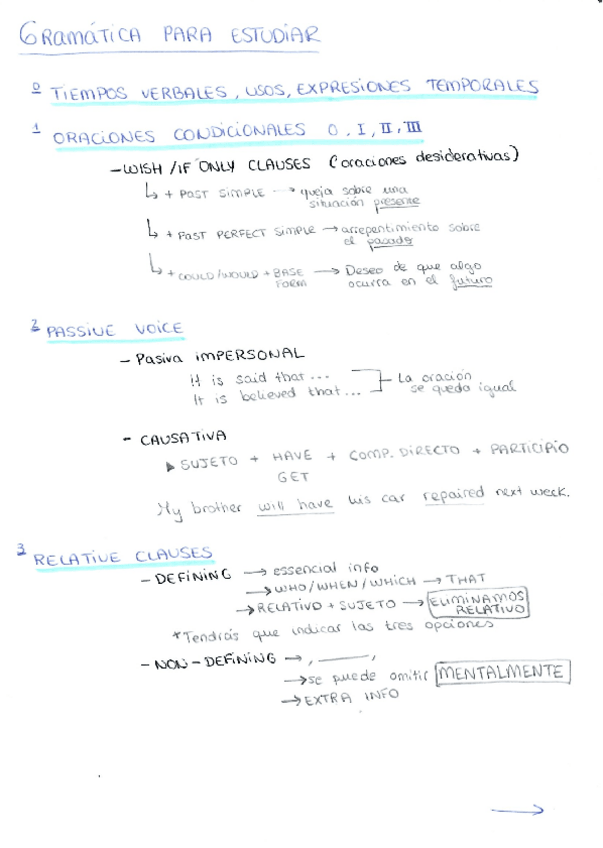 GRAMÁTICA PARA ESTUDIAR
0 TIEMPOS VERBALES, USOS, EXPRESIONES TEMPORALES
1 ORACIONES CONDICIONALES 0, I, II, III
- WISH / IF ONLY CLAUSES (oraciones desiderativas)
↳ + PAST SIMPLE → queja sobre una
situación presente
↳ + PAST PERFECT SIMPLE → arrepentimiento sobre
el pasado
↳ + COULD/WOULD + BASE → Deseo de que algo
FORM ocurra en el futuro
2 PASSIVE VOICE
- Pasiva IMPERSONAL
it is said that ...
It is believed that ... La oración
se queda igual
- CAUSATIVA
▶ SUJETO + HAVE + COMP. DIRECTO + PARTICIPIO
GET
My brother will have his car repaired next week.
3 RELATIVE CLAUSES
- DEFINING → essencial info
→ WHO / WHEN / WHICH → THAT
→ RELATIVO + SUJETO → ELIMINAMOS
RELATIVO
*Tendrás que indicar las tres opciones
- NON - DEFINING → , ——— ,
→ se puede omitir MENTALMENTE
→ EXTRA INFO
→